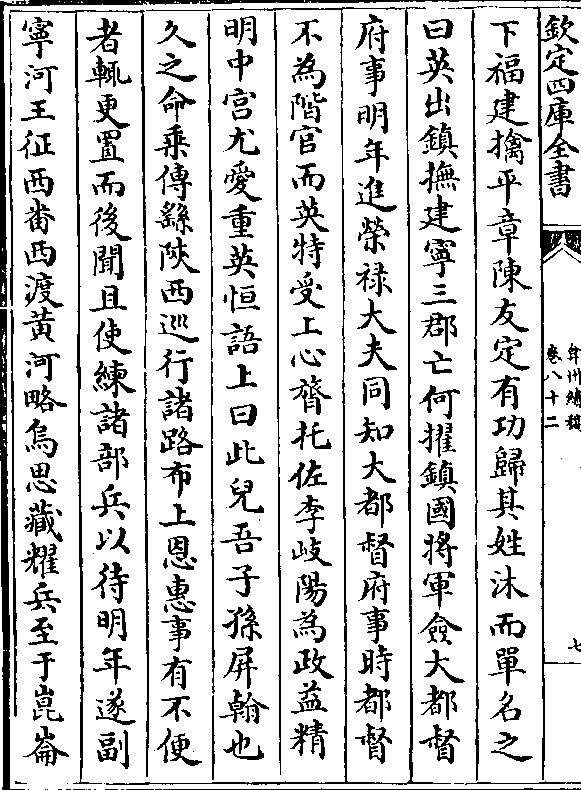 欽定四庫全書
弇州續稿
卷八十二
七
下福建擒平章陳友定有功歸其姓沐而單名之
曰英出鎮撫建寧三郡亡何擢鎮國將軍僉大都督
府事明年進榮禄大夫同知大都督府事時都督
不為階官而英特受上心膂托佐李岐陽為政益精
明中宫尤愛重英恒語上曰此兒吾子孫屏翰也
久之命乗傳繇陜西巡行諸路布上恩惠事有不便
者輒更置而後聞且使練諸部兵以待明年遂副
寧河王征西畨西渡黄河略烏思藏耀兵至于崑崙